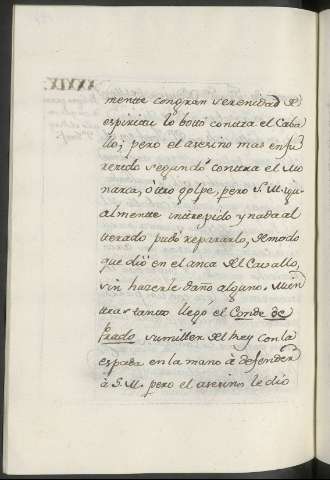 mente con gran serenidad de
espiritu lo botó contra el Caba
llo; pero el asesino mas enfu
recido segundó contra el Mo
narca, otro golpe, pero S. M. igu
almente intrepido y nada al
terado pudo repararlo, de modo
que dió en el anca del Cavallo,
sin hazerle daño alguno. Mien
tras tanto llegó el Conde de
Prado sumiller del Rey con la
espada en la mano à defender
à S. M. pero el asesino le dió